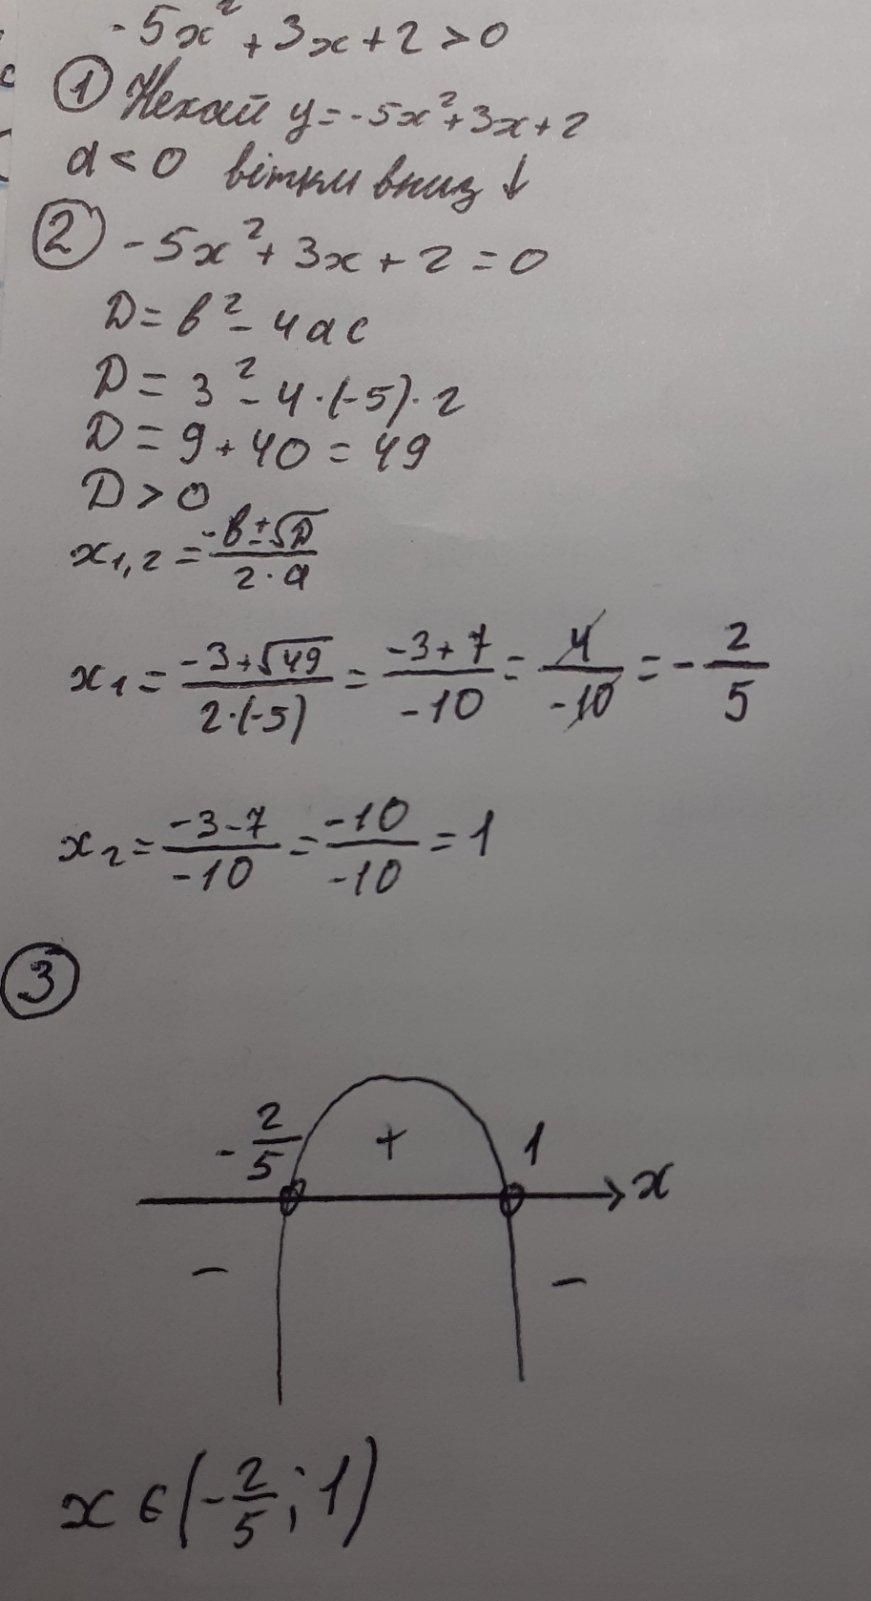 -5x² + 3x + 2 > 0
① Нехай y = -5x² + 3x + 2
a < 0 вітки вниз ↓
② -5x² + 3x + 2 = 0
D = b² - 4ac
D = 3² - 4·(-5)·2
D = 9 + 40 = 49
D > 0
x₁,₂ = (-b ± √D)/(2·a)
x₁ = (-3 + √49)/(2·(-5)) = (-3 + 7)/(-10) = 4/(-10) = -2/5
x₂ = (-3 - 7)/(-10) = (-10)/(-10) = 1
③
-2/5 + 1
x
- -
x ∈ (-2/5; 1)